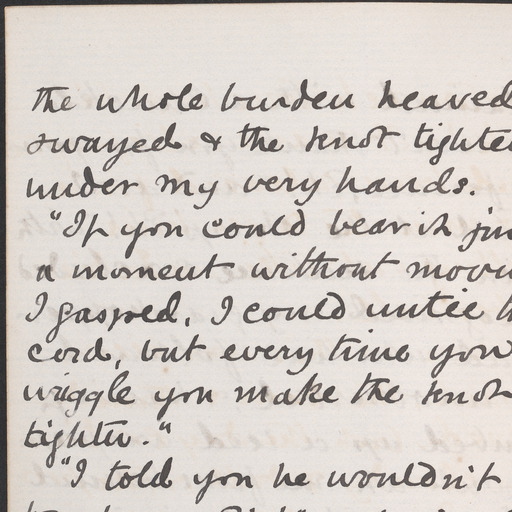 the whole burden heaved
swayed & the knot tighte
under my very hands.
"If you could bear it ju
a moment without movi
I gasped, I could untie th
cord, but every time you
wriggle you make the knot
tighter."
"I told you he wouldn't